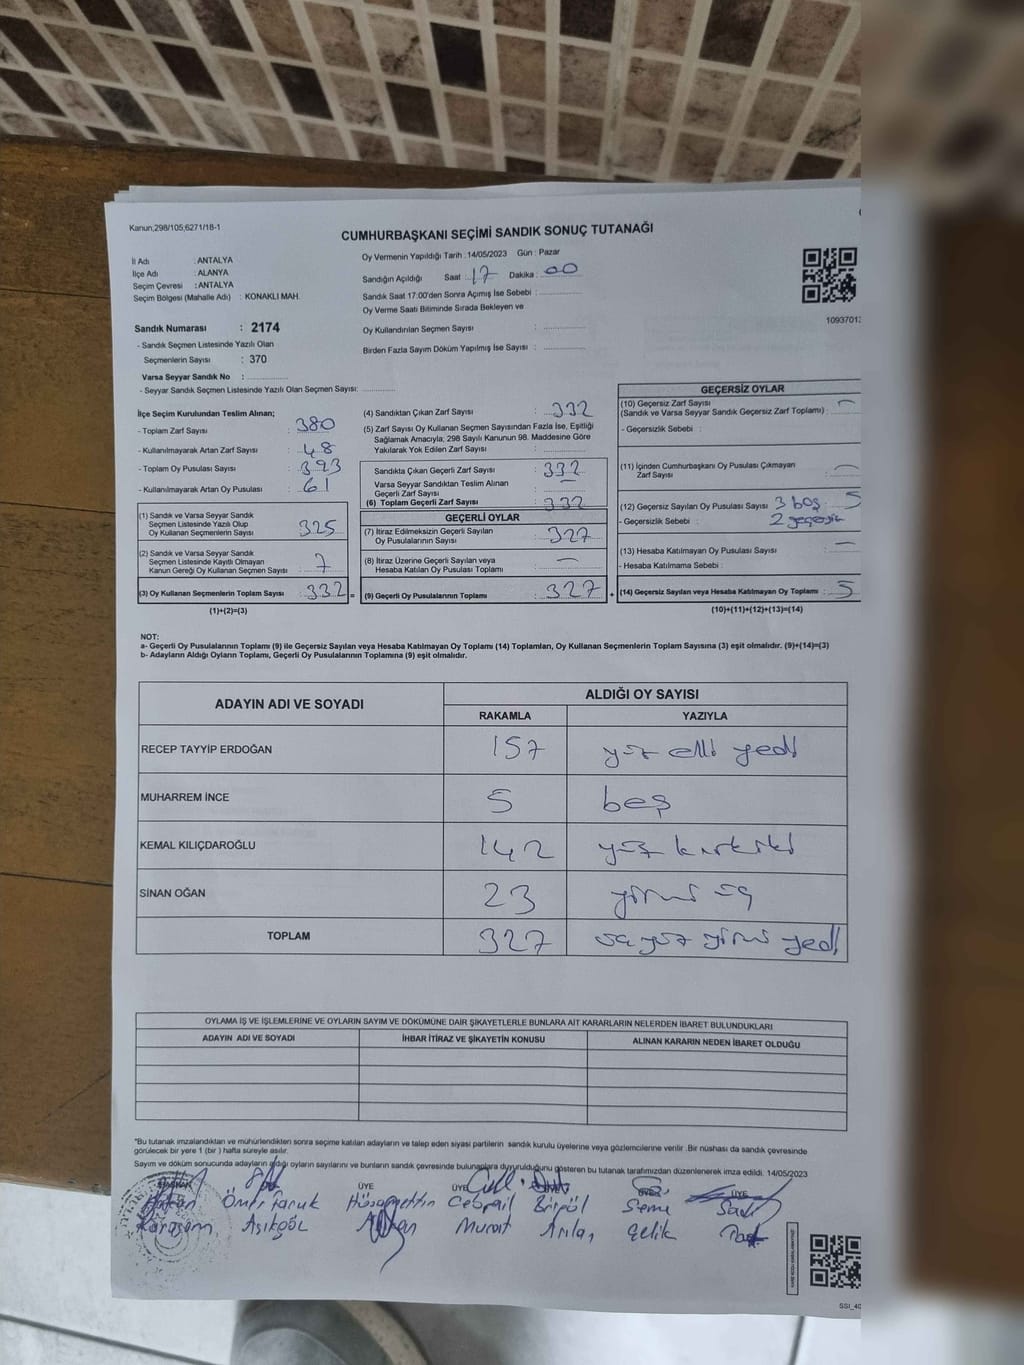 Kanun,298/105;6271/18-1
CUMHURBAŞKANI SEÇİMİ SANDIK SONUÇ TUTANAĞI
İl Adı : ANTALYA
İlçe Adı : ALANYA
Seçim Çevresi : ANTALYA
Seçim Bölgesi (Mahalle Adı) : KONAKLI MAH.
Oy Vermenin Yapıldığı Tarih : 14/05/2023 Gün : Pazar
Sandığın Açıldığı Saat : 17 Dakika : 00
Sandık Saat 17:00'den Sonra Açımış İse Sebebi :
Oy Verme Saati Bitiminde Sırada Bekleyen ve
Oy Kullandırılan Seçmen Sayısı :
Birden Fazla Sayım Döküm Yapılmış İse Sayısı :
1093701
Sandık Numarası : 2174
- Sandık Seçmen Listesinde Yazılı Olan
Seçmenlerin Sayısı : 370
Varsa Seyyar Sandık No :
- Seyyar Sandık Seçmen Listesinde Yazılı Olan Seçmen Sayısı:
İlçe Seçim Kurulundan Teslim Alınan;
- Toplam Zarf Sayısı : 380
- Kullanılmayarak Artan Zarf Sayısı : 48
- Toplam Oy Pusulası Sayısı : 393
- Kullanılmayarak Artan Oy Pusulası : 61
(1) Sandık ve Varsa Seyyar Sandık
Seçmen Listesinde Yazılı Olup
Oy Kullanan Seçmenlerin Sayısı : 325
(2) Sandık ve Varsa Seyyar Sandık
Seçmen Listesinde Kayıtlı Olmayan
Kanun Gereği Oy Kullanan Seçmen Sayısı : 7
(3) Oy Kullanan Seçmenlerin Toplam Sayısı : 332 =
(1)+(2)=(3)
(4) Sandıktan Çıkan Zarf Sayısı : 332
(5) Zarf Sayısı Oy Kullanan Seçmen Sayısından Fazla İse, Eşitliği
Sağlamak Amacıyla; 298 Sayılı Kanunun 98. Maddesine Göre
Yakılarak Yok Edilen Zarf Sayısı :
Sandıkta Çıkan Geçerli Zarf Sayısı : 332
Varsa Seyyar Sandıktan Teslim Alınan
Geçerli Zarf Sayısı : —
(6) Toplam Geçerli Zarf Sayısı : 332
GEÇERLİ OYLAR
(7) İtiraz Edilmeksizin Geçerli Sayılan
Oy Pusulalarının Sayısı : 327
(8) İtiraz Üzerine Geçerli Sayılan veya
Hesaba Katılan Oy Pusulası Toplamı : —
(9) Geçerli Oy Pusulalarının Toplamı : 327 +
GEÇERSİZ OYLAR
(10) Geçersiz Zarf Sayısı
(Sandık ve Varsa Seyyar Sandık Geçersiz Zarf Toplamı) : —
- Geçersizlik Sebebi :
(11) İçinden Cumhurbaşkanı Oy Pusulası Çıkmayan
Zarf Sayısı : —
(12) Geçersiz Sayılan Oy Pusulası Sayısı : 3 boş 5
- Geçersizlik Sebebi : 2 geçersiz
(13) Hesaba Katılmayan Oy Pusulası Sayısı : —
- Hesaba Katılmama Sebebi :
(14) Geçersiz Sayılan veya Hesaba Katılmayan Oy Toplamı : 5
(10)+(11)+(12)+(13)=(14)
NOT:
a- Geçerli Oy Pusulalarının Toplamı (9) ile Geçersiz Sayılan veya Hesaba Katılmayan Oy Toplamı (14) Toplamları, Oy Kullanan Seçmenlerin Toplam Sayısına (3) eşit olmalıdır. (9)+(14)=(3)
b- Adayların Aldığı Oyların Toplamı, Geçerli Oy Pusulalarının Toplamına (9) eşit olmalıdır.
ADAYIN ADI VE SOYADI
ALDIĞI OY SAYISI
RAKAMLA YAZIYLA
RECEP TAYYİP ERDOĞAN 157 yüz elli yedi
MUHARREM İNCE 5 beş
KEMAL KILIÇDAROĞLU 142 yüz kırk iki
SİNAN OĞAN 23 yirmi üç
TOPLAM 327 üç yüz yirmi yedi
OYLAMA İŞ VE İŞLEMLERİNE VE OYLARIN SAYIM VE DÖKÜMÜNE DAİR ŞİKAYETLERLE BUNLARA AİT KARARLARIN NELERDEN İBARET BULUNDUKLARI
ADAYIN ADI VE SOYADI İHBAR İTİRAZ VE ŞİKAYETİN KONUSU ALINAN KARARIN NEDEN İBARET OLDUĞU
*Bu tutanak imzalandıktan ve mühürlendikten sonra seçime katılan adayların ve talep eden siyasi partilerin sandık kurulu üyelerine veya gözlemcilerine verilir .Bir nüshası da sandık çevresinde
görülecek bir yere 1 (bir ) hafta süreyle asılır.
Sayım ve döküm sonucunda adayların aldığı oyların sayılarını ve bunların sandık çevresinde bulunanlara duyurulduğunu gösteren bu tutanak tarafımızdan düzenlenerek imza edildi. 14/05/2023
ÜYE ÜYE ÜYE ÜYE
Hakan Ömer Faruk Hüsamettin Cebrail Birgül Sema
Aşıkgöz Murat Arılan Çelik
SSİ_40